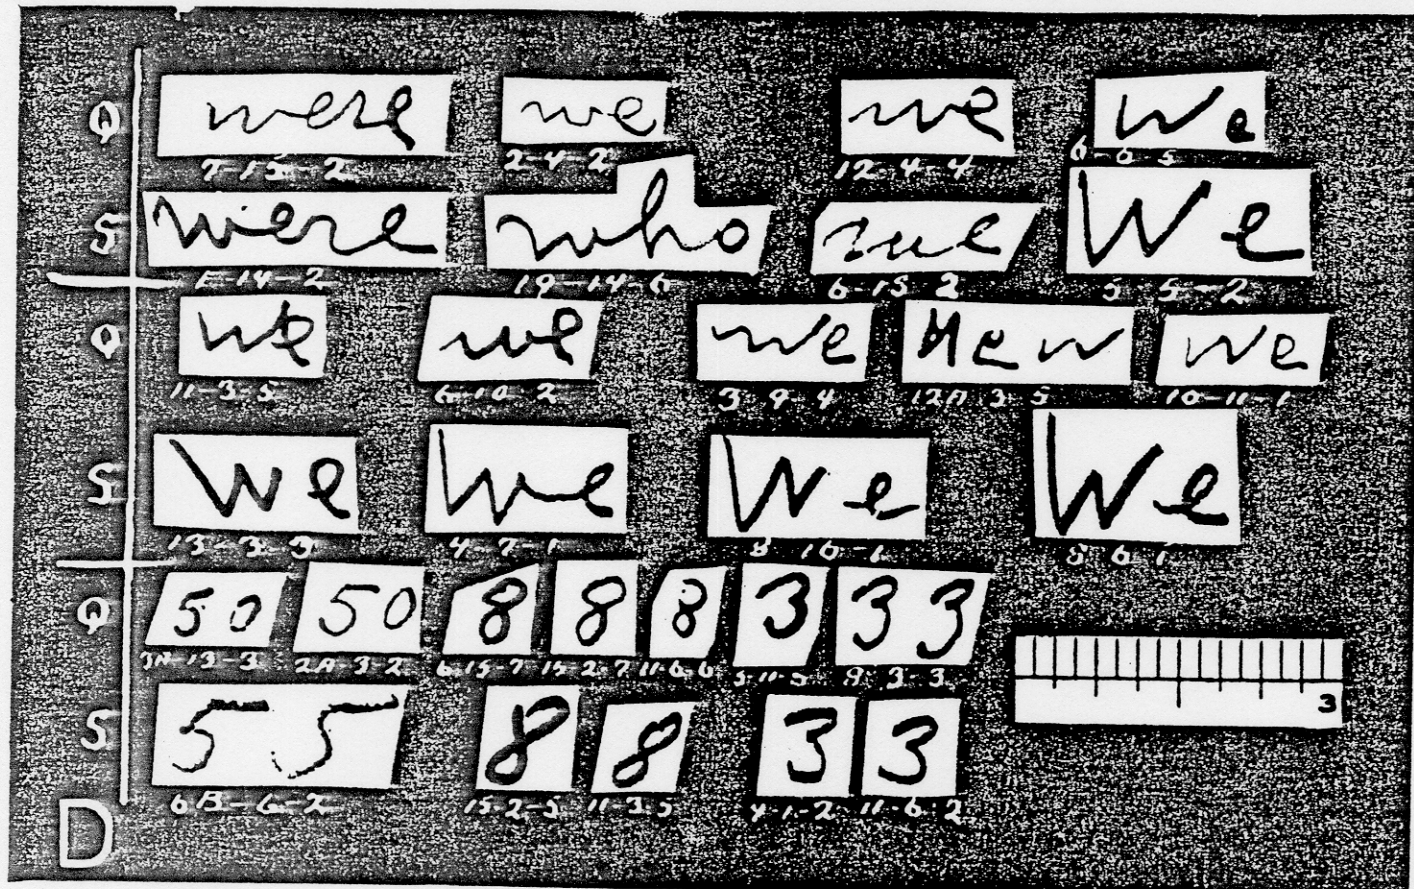 Q were we we We
7-15-2 2-4-2 12-4-4 6-6-5
S were who we We
E-14-2 19-14-6 6-15-2 5-5-2
Q we we we New we
11-3-5 6-10-2 3-9-4 12A-3-5 10-11-1
S We We We We
13-3-3 4-7-1 8-10-1 5-6-1
Q 50 50 8 8 8 3 3 3
3A-13-3 2A-3-2 6-15-7 15-2-7 11-6-6 5-11-5 8-3-3
S 5 5 8 8 3 3
3
6B-6-2 15-2-5 11-3-5 4-1-2 11-6-2
D